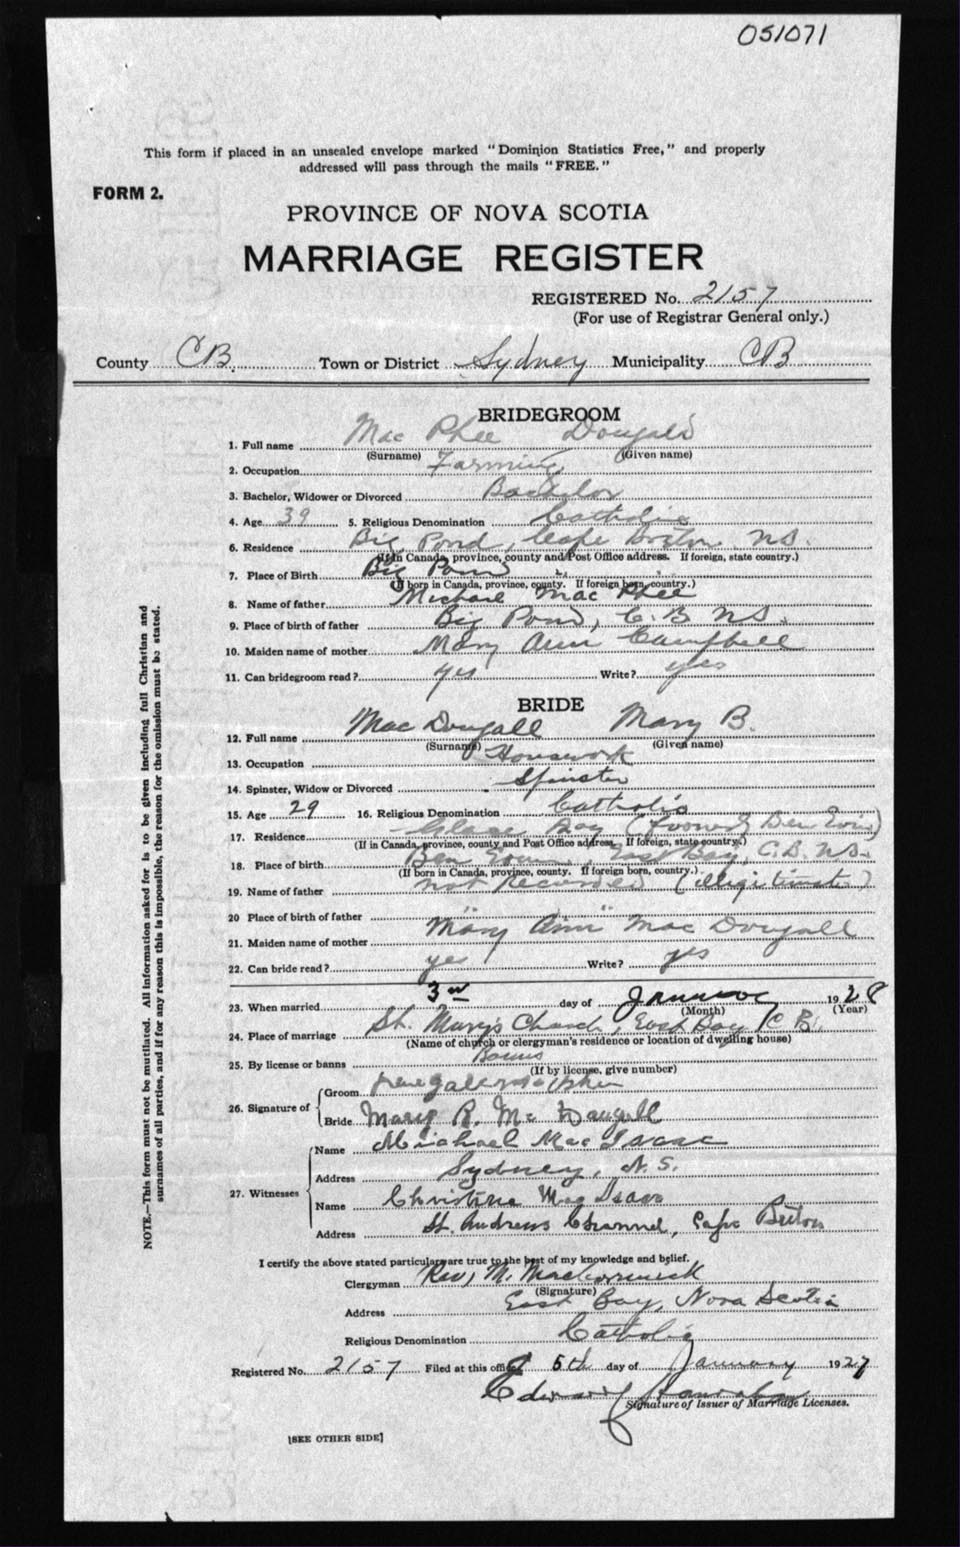 051071
This form if placed in an unsealed envelope marked "Dominion Statistics Free," and properly
addressed will pass through the mails "FREE."
FORM 2.
PROVINCE OF NOVA SCOTIA
MARRIAGE REGISTER
REGISTERED No. 2157
(For use of Registrar General only.)
County CB. Town or District Sydney Municipality CB
BRIDEGROOM
1. Full name Mac Phee Dougald
(Surname) (Given name)
2. Occupation Farming
3. Bachelor, Widower or Divorced Bachelor
4. Age 39 5. Religious Denomination Catholic
6. Residence Big Pond, Cape Breton N.S.
(If in Canada, province, county and Post Office address. If foreign, state country.)
7. Place of Birth Big Pond
(If born in Canada, province, county. If foreign born, country.)
8. Name of father Michael Mac Phee
9. Place of birth of father Big Pond, C.B. N.S.
10. Maiden name of mother Mary Ann Campbell
11. Can bridegroom read? yes Write? yes
BRIDE
12. Full name Mac Dougall Mary B.
(Surname) (Given name)
13. Occupation Housework
14. Spinster, Widow or Divorced Spinster
15. Age 29 16. Religious Denomination Catholic
17. Residence Glace Bay (formerly Ben Eoin)
(If in Canada, province, county and Post Office address. If foreign, state country.)
18. Place of birth Ben Eoin, East Bay, C.B. N.S.
(If born in Canada, province, county. If foreign born, country.)
19. Name of father Not Recorded (illigitimate)
20 Place of birth of father " "
21. Maiden name of mother Mary Ann Mac Dougall
22. Can bride read? yes Write? yes
23. When married 3rd day of January 1928
(Month) (Year)
24. Place of marriage St. Mary's Church, East Bay, C.B.
(Name of church or clergyman's residence or location of dwelling house)
25. By license or banns Banns
(If by license, give number)
26. Signature of
Groom
Bride Mary B. Mc Dougall
27. Witnesses
Name Michael Mac Isaac
Address Sydney, N.S.
Name Christine Mac Isaac
Address St. Andrews Channel, Cape Breton
I certify the above stated particulars are true to the best of my knowledge and belief.
Clergyman Rev, M. MacCormick
(Signature)
Address East Bay, Nova Scotia
Religious Denomination Catholic
Registered No. 2157 Filed at this office 5th day of January 1927
Edward Hanrahan
Signature of Issuer of Marriage Licenses.
[SEE OTHER SIDE]
NOTE.—This form must not be mutilated. All information asked for is to be given including full Christian and
surnames of all parties, and if for any reason this is impossible, the reason for the omission must be stated.